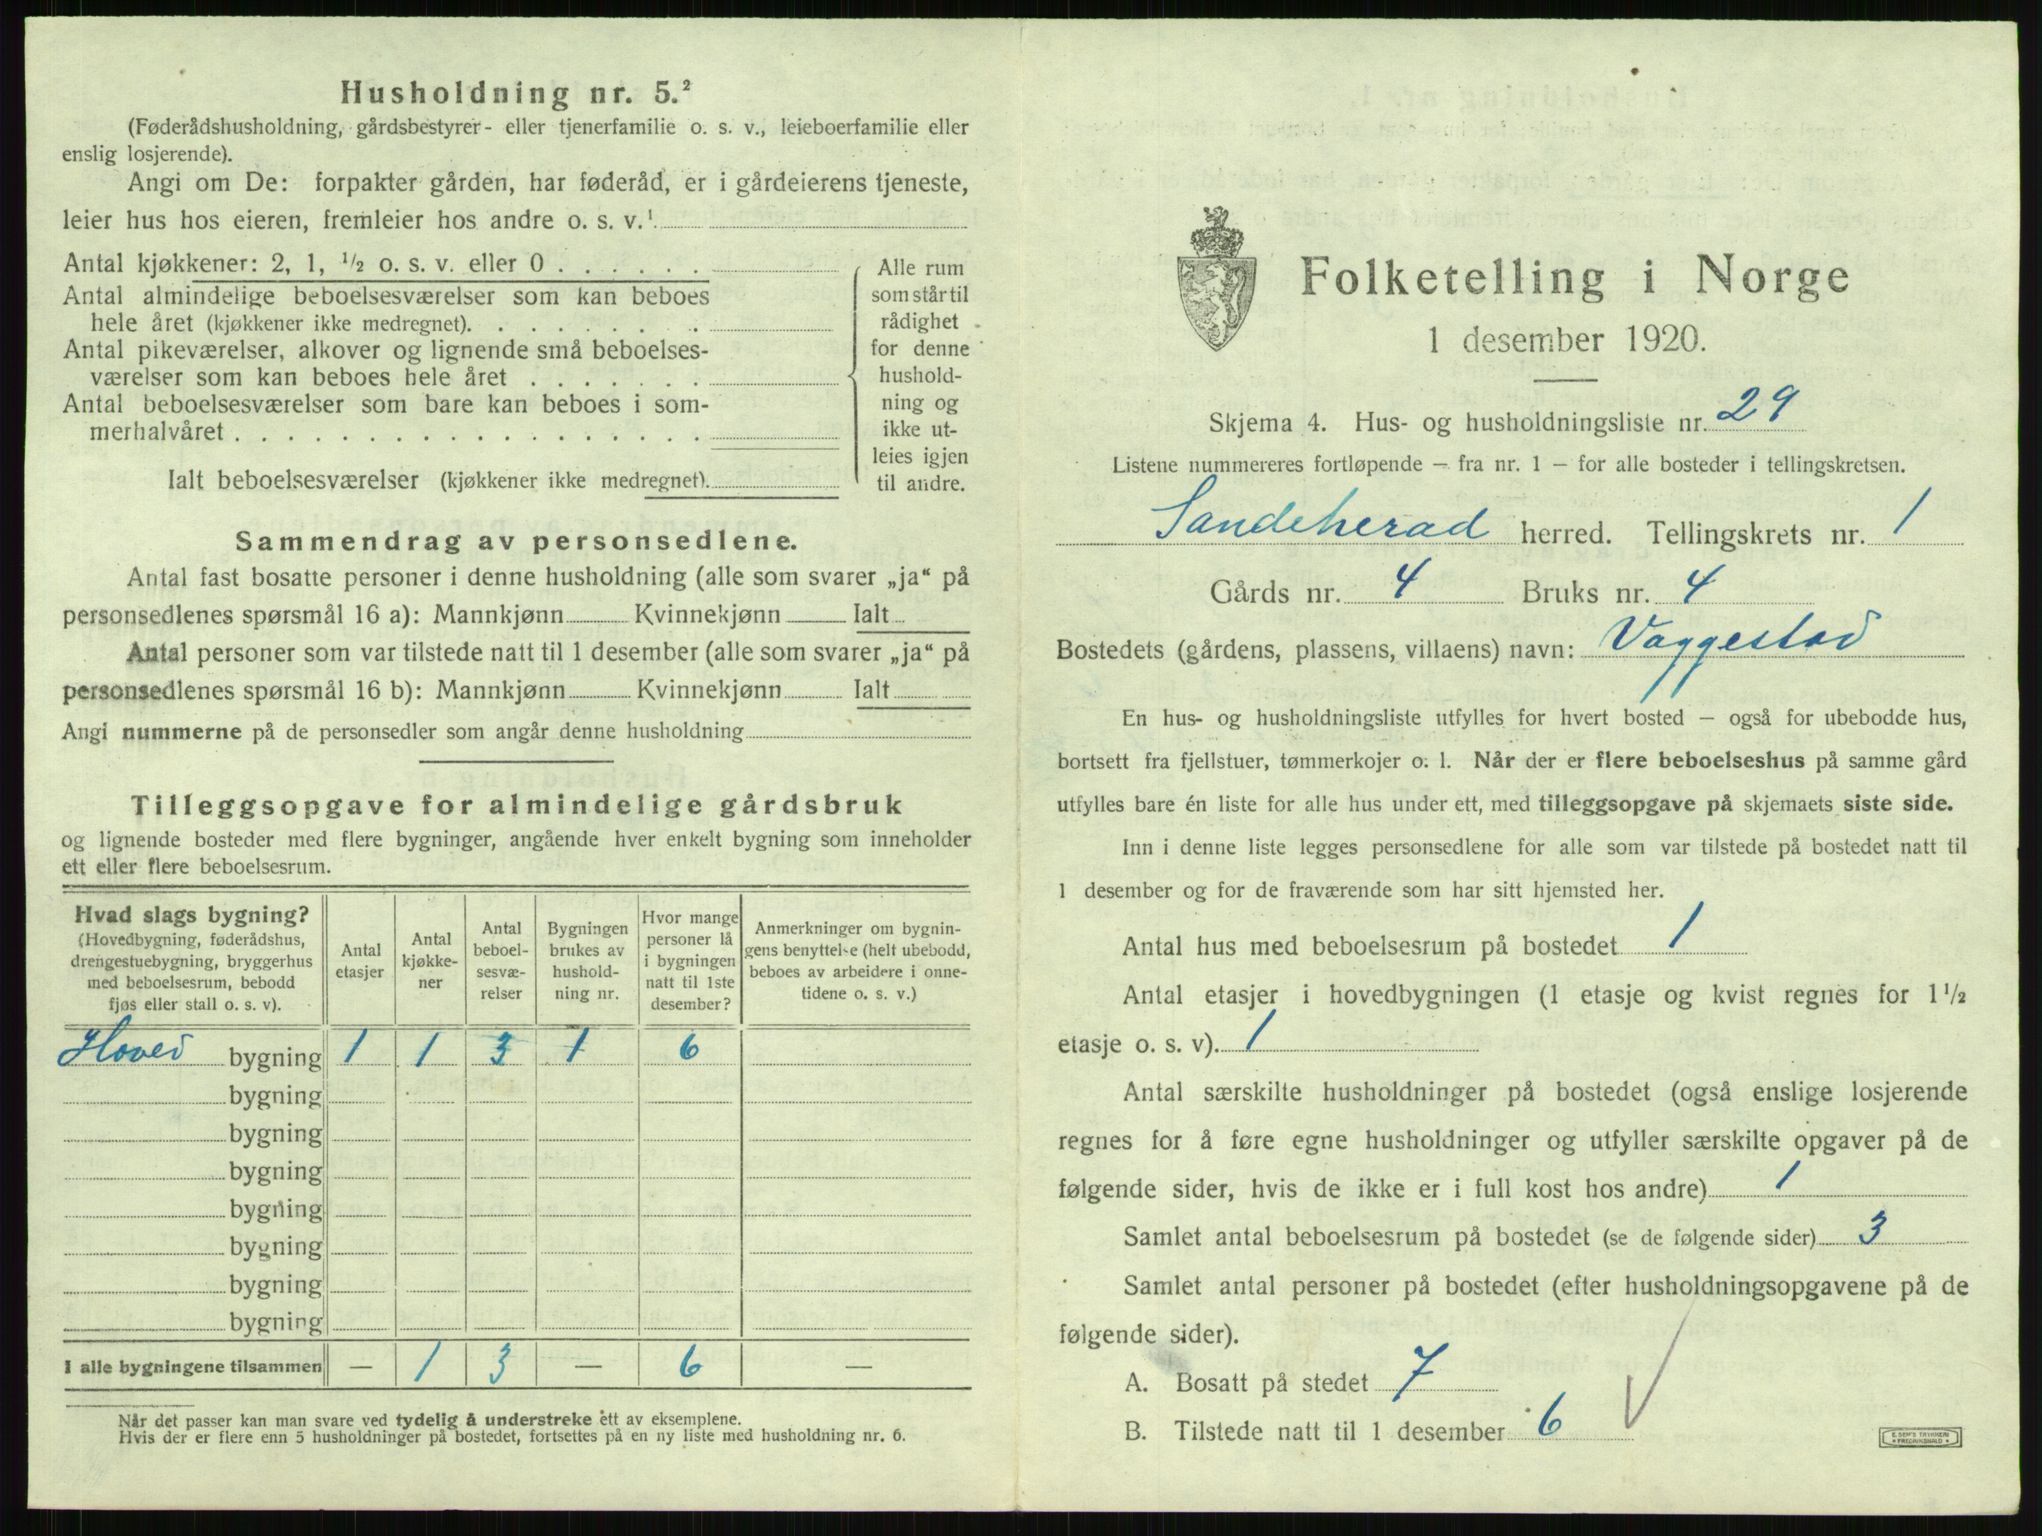 Husholdning nr. 5.²
(Føderådshusholdning, gårdsbestyrer- eller tjenerfamilie o. s. v., leieboerfamilie eller
enslig losjerende).
Angi om De: forpakter gården, har føderåd, er i gårdeierens tjeneste,
leier hus hos eieren, fremleier hos andre o. s. v.¹
Antal kjøkkener: 2, 1, ½ o. s. v. eller 0 . . . . . .
Antal almindelige beboelsesværelser som kan beboes
hele året (kjøkkener ikke medregnet). . . . . . . . .
Antal pikeværelser, alkover og lignende små beboelses-
værelser som kan beboes hele året . . . . . . .
Antal beboelsesværelser som bare kan beboes i som-
merhalvåret . . . . . . . . . . . . . . . . . .
Ialt beboelsesværelser (kjøkkener ikke medregnet).
Alle rum
som står til
rådighet
for denne
hushold-
ning og
ikke ut-
leies igjen
til andre.
Sammendrag av personsedlene.
Antal fast bosatte personer i denne husholdning (alle som svarer „ja“ på
personsedlenes spørsmål 16 a): Mannkjønn Kvinnekjønn Ialt
Antal personer som var tilstede natt til 1 desember (alle som svarer „ja“ på
personsedlenes spørsmål 16 b): Mannkjønn Kvinnekjønn Ialt
Angi nummerne på de personsedler som angår denne husholdning
Tilleggsopgave for almindelige gårdsbruk
og lignende bosteder med flere bygninger, angående hver enkelt bygning som inneholder
ett eller flere beboelsesrum.
Hvad slags bygning?
(Hovedbygning, føderådshus,
drengestuebygning, bryggerhus
med beboelsesrum, bebodd
fjøs eller stall o. s. v).
Antal
etasjer
Antal
kjøkke-
ner
Antal
beboel-
sesvæ-
relser
Bygningen
brukes av
hushold-
ning nr.
Hvor mange
personer lå
i bygningen
natt til 1ste
desember?
Anmerkninger om bygnin-
gens benyttelse (helt ubebodd,
beboes av arbeidere i onne-
tidene o. s. v.)
Hoved bygning 1 1 3 1 6
bygning
bygning
bygning
bygning
bygning
bygning
bygning
I alle bygningene tilsammen — 1 3 — 6 —
Når det passer kan man svare ved tydelig å understreke ett av eksemplene.
Hvis der er flere enn 5 husholdninger på bostedet, fortsettes på en ny liste med husholdning nr. 6.
Folketelling i Norge
1 desember 1920.
Skjema 4. Hus- og husholdningsliste nr. 29
Listene nummereres fortløpende — fra nr. 1 — for alle bosteder i tellingskretsen.
Sandeherad herred. Tellingskrets nr. 1
Gårds nr. 4 Bruks nr. 4
Bostedets (gårdens, plassens, villaens) navn: Vaggestad
En hus- og husholdningsliste utfylles for hvert bosted — også for ubebodde hus,
bortsett fra fjellstuer, tømmerkojer o. l. Når der er flere beboelseshus på samme gård
utfylles bare én liste for alle hus under ett, med tilleggsopgave på skjemaets siste side.
Inn i denne liste legges personsedlene for alle som var tilstede på bostedet natt til
1 desember og for de fraværende som har sitt hjemsted her.
Antal hus med beboelsesrum på bostedet 1
Antal etasjer i hovedbygningen (1 etasje og kvist regnes for 1½
etasje o. s. v). 1
Antal særskilte husholdninger på bostedet (også enslige losjerende
regnes for å føre egne husholdninger og utfyller særskilte opgaver på de
følgende sider, hvis de ikke er i full kost hos andre) 1
Samlet antal beboelsesrum på bostedet (se de følgende sider) 3
Samlet antal personer på bostedet (efter husholdningsopgavene på de
følgende sider).
A. Bosatt på stedet 7
B. Tilstede natt til 1 desember 6